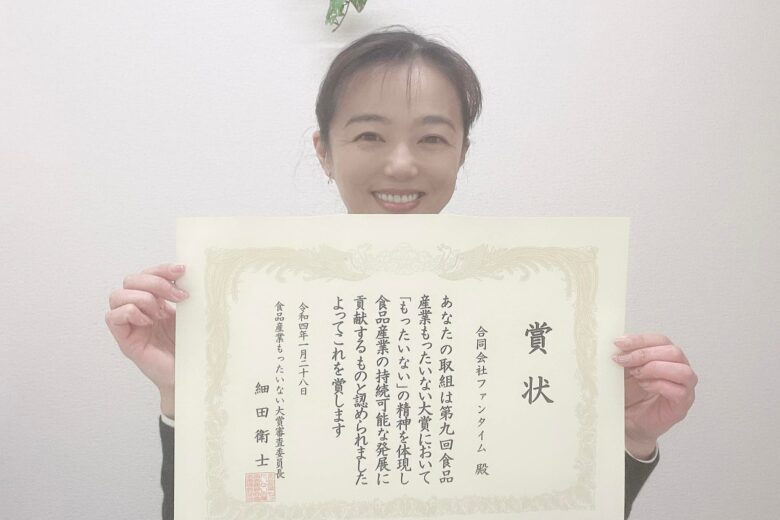 賞状
合同会社ファンタイム 殿
あなたの取組は第九回食品
産業もったいない大賞において
「もったいない」の精神を体現し
食品産業の持続可能な発展に
貢献するものと認められました
よってこれを賞します
令和四年一月二十八日
食品産業もったいない大賞審査委員長
細田衛士